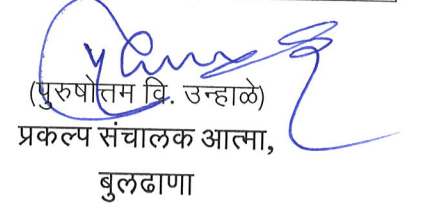 (पुरुषोत्तम वि. उन्हाळे)
प्रकल्प संचालक आत्मा,
बुलढाणा